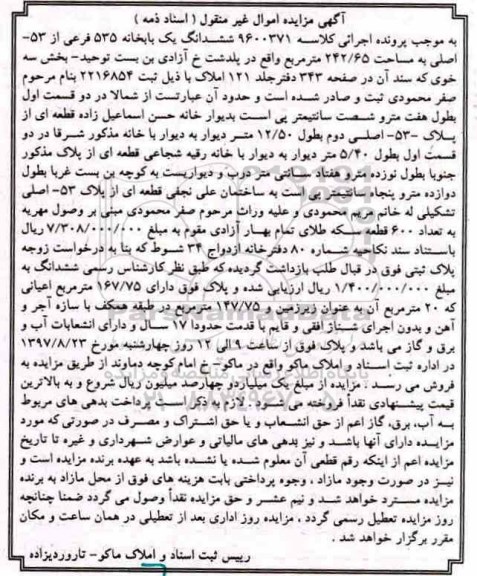 آگهی مزایده اموال غیر منقول ( اسناد ذمه )
به موجب پرونده اجرائی کلاسه ۹۶۰۰۳۷۱ ششدانگ یک بابخانه ۵۳۵ فرعی از ۵۳-
اصلی به مساحت ۲۴۲/۶۵ مترمربع واقع در پلدشت خ آزادی بن بست توحید- بخش سه
خوی که سند آن در صفحه ۳۴۳ دفترجلد ۱۲۱ املاک با ذیل ثبت ۲۲۱۶۸۵۴ بنام مرحوم
صفر محمودی ثبت و صادر شده است و حدود آن عبارتست از شمالا در دو قسمت اول
بطول هفت مترو شصت سانتیمتر پی است بدیوار خانه حسن اسماعیل زاده قطعه ای از
پلاک -۵۳- اصلی دوم بطول ۱۲/۵۰ متر دیوار به دیوار با خانه مذکور شرقا در دو
قسمت اول بطول ۵/۴۰ متر دیوار به دیوار با خانه رقیه شجاعی قطعه ای از پلاک مذکور
جنوبا بطول نوزده مترو هفتاد سانتی متر درب و دیواریست به کوچه بن بست غربا بطول
دوازده مترو پنجاه سانتیمتر پی است به ساختمان علی نجفی قطعه ای از پلاک ۵۳- اصلی
تشکیلی له خانم مریم محمودی و علیه وراث مرحوم صفر محمودی مبنی بر وصول مهریه
به تعداد ۶۰۰ قطعه سکه طلای تمام بهار آزادی مقوم به مبلغ ۷/۳۰۸/۰۰۰/۰۰۰ ریال
باستناد سند نکاحیه شماره ۸۰ دفترخانه ازدواج ۳۴ شوط که بنا به درخواست زوجه
پلاک ثبتی فوق در قبال طلب بازداشت گردیده که طبق نظر کارشناس رسمی ششدانگ به
مبلغ ۱/۴۰۰/۰۰۰/۰۰۰ ریال ارزیابی شده و پلاک فوق دارای ۱۶۷/۷۵ مترمربع اعیانی
که ۲۰ مترمربع آن به عنوان زیرزمین و ۱۴۷/۷۵ مترمربع در طبقه همکف با سازه آجر و
آهن و بدون اجرای شناژ افقی و قایم با قدمت حدودا ۱۷ سال و دارای انشعابات آب و
برق و گاز می باشد و پلاک فوق از ساعت ۹ الی ۱۲ روز چهارشنبه مورخ ۱۳۹۷/۸/۲۳
در اداره ثبت اسناد و املاک ماکو واقع در ماکو- خ امام کوچه دماوند از طریق مزایده به
فروش می رسد . مزایده از مبلغ یک میلیاردو چهارصد میلیون ریال شروع و به بالاترین
قیمت پیشنهادی نقدا فروخته می شود . لازم به ذکر است پرداخت بدهی های مربوط
به آب، برق، گاز اعم از حق انشعاب و یا حق اشتراک و مصرف در صورتی که مورد
مزایده دارای آنها باشد و نیز بدهی های مالیاتی و عوارض شهرداری و غیره تا تاریخ
مزایده اعم از اینکه رقم قطعی آن معلوم شده یا نشده باشد به عهده برنده مزایده است و
نیز در صورت وجود مازاد ، وجوه پرداختی بابت هزینه های فوق از محل مازاد به برنده
مزایده مسترد خواهد شد و نیم عشر و حق مزایده نقداً وصول می گردد ضمنا چنانچه
روز مزایده تعطیل رسمی گردد ، مزایده روز اداری بعد از تعطیلی در همان ساعت و مکان
مقرر برگزار خواهد شد .
رییس ثبت اسناد و املاک ماکو- تاروردیزاده